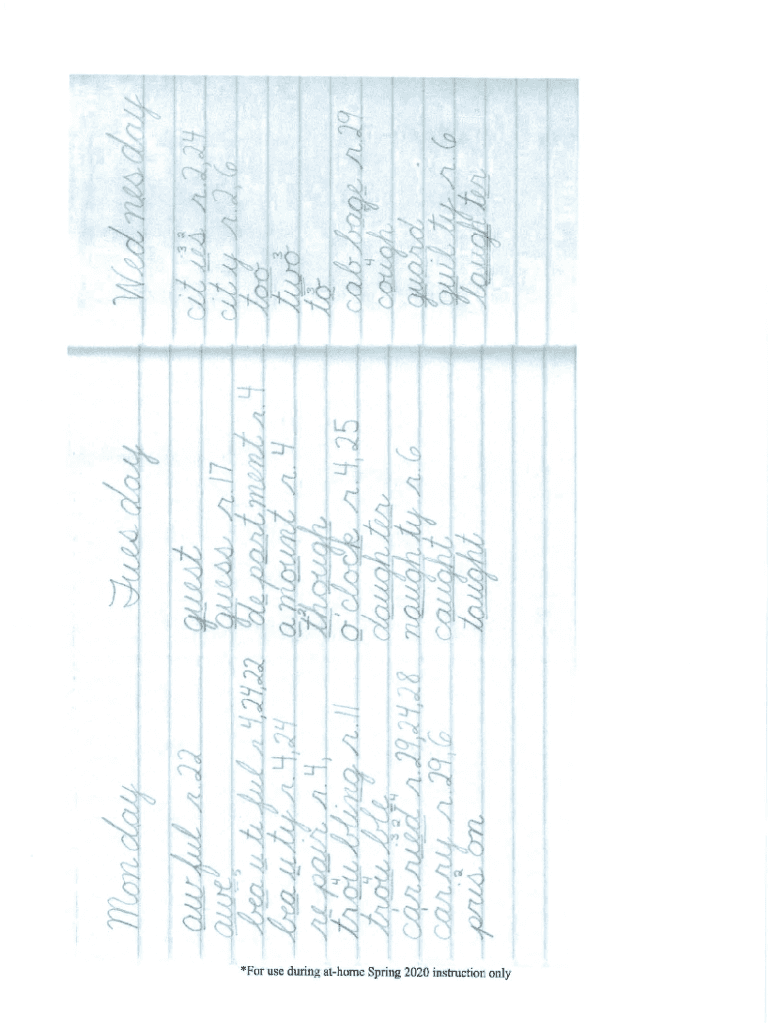 Monday
awful r.22
awe
beau ti ful r.4,24,22
beau ty r.4,24
re pair r.4,
trou bling r.11
trou ble
car ried r.29,24,28
car ry r.29,6
pris on
Tues day
guest
guess r.17
de part ment r.4
a mount r.4
though
o'clock r.4,25
daugh ter
naugh ty r.6
caught
taught
Wed nes day
cit ies r.2,24
cit y r.2,6
too
two
to
cab bage r.29
cough
guard
guil ty r.6
laugh ter
*For use during at-home Spring 2020 instruction only